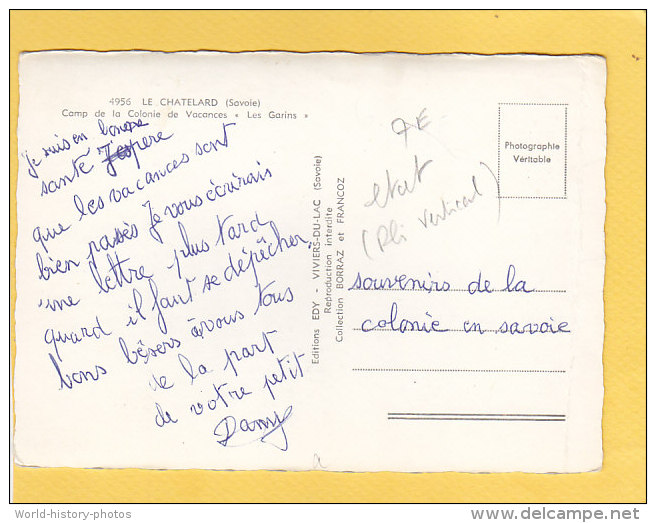 4956 LE CHATELARD (Savoie)
Camp de la Colonie de Vacances « Les Garins »
Je suis en bonne
santé J'espère
que les vacances sont
bien passés Je vous écrirais
une lettre plus tard
quand il faut se dépêcher.
bons bésers à vous tous
de la part
de votre petit
Dany
Editions EDY - VIVIERS-DU-LAC (Savoie)
Reproduction interdite
Collection BORRAZ et FRANCOZ
7E
etat
(Pli vertical)
Photographie
Véritable
souvenirs de la
colonie en savoie
World-history-photos
http://www.delcampe.net